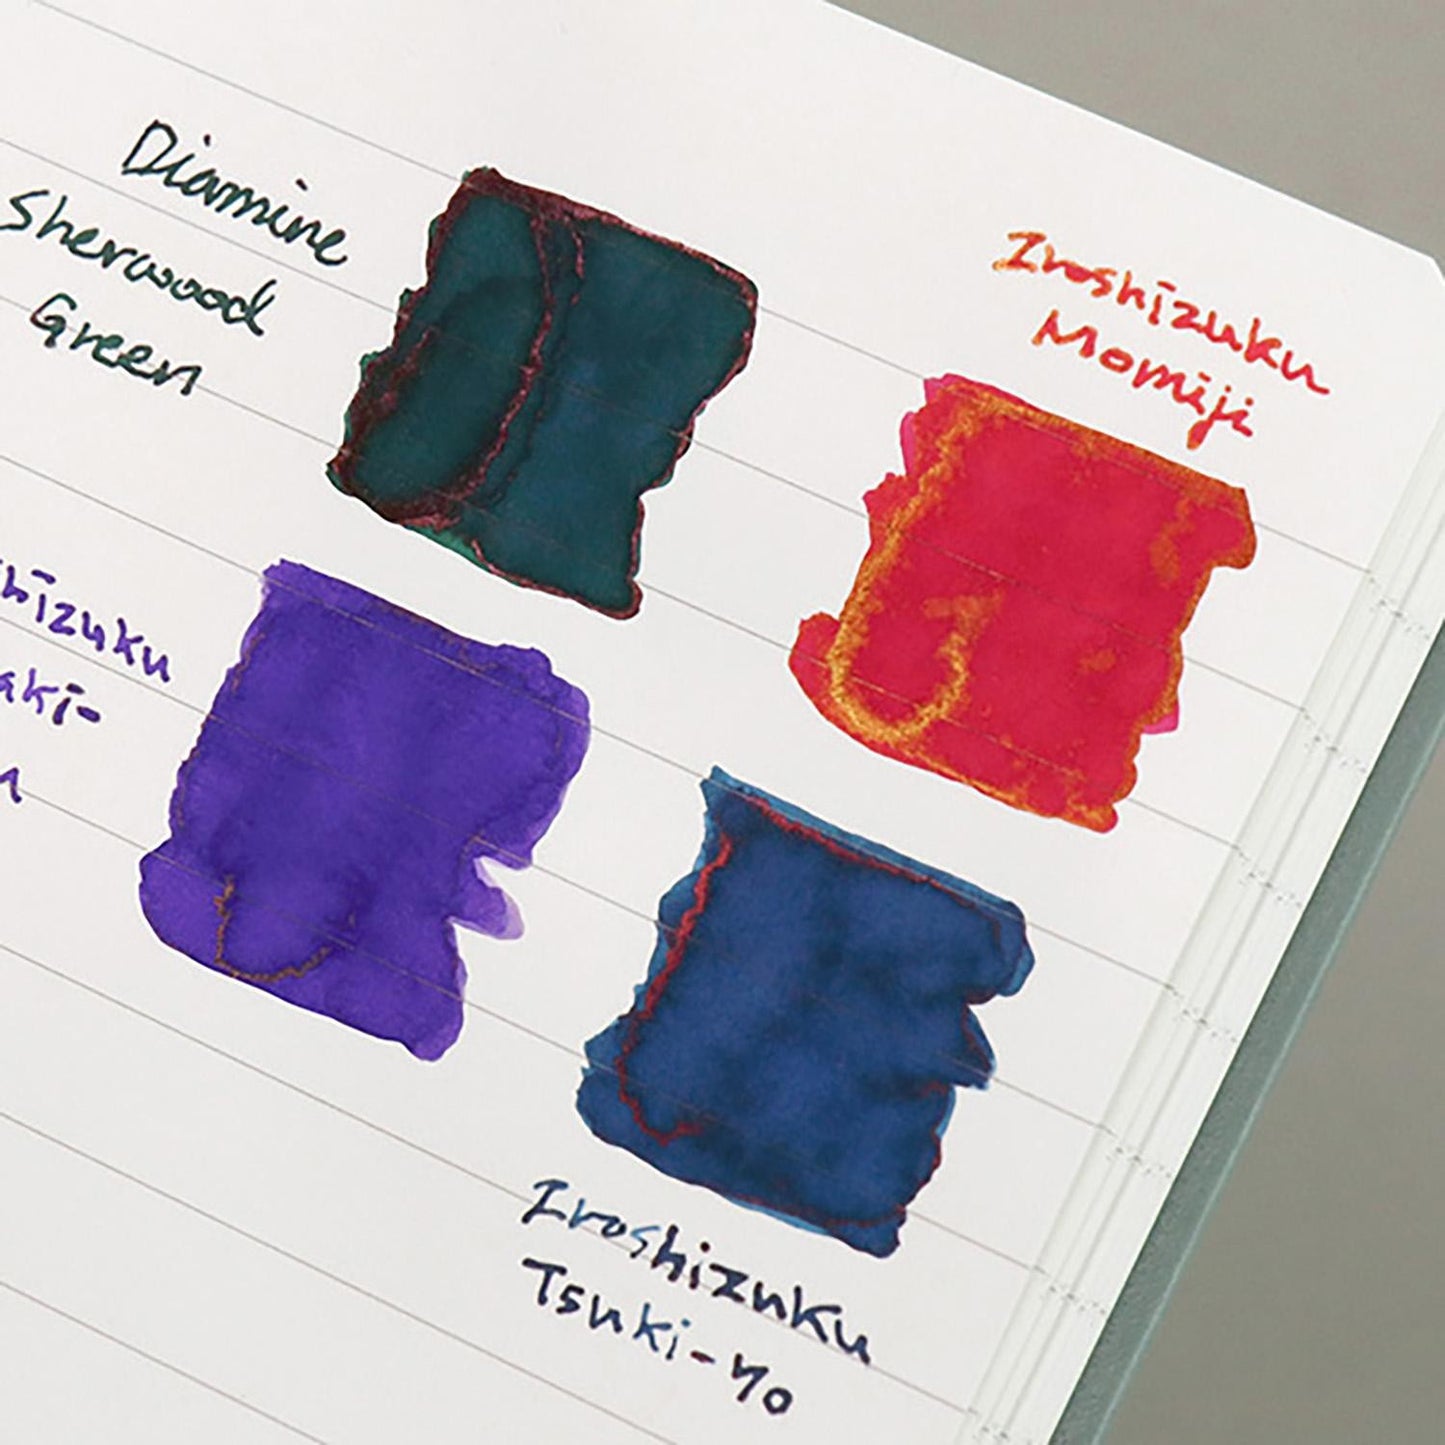 Diamine
Sherwood
Green
Iroshizuku
Momiji
hizuku
aki-
n
Iroshizuku
Tsuki-yo